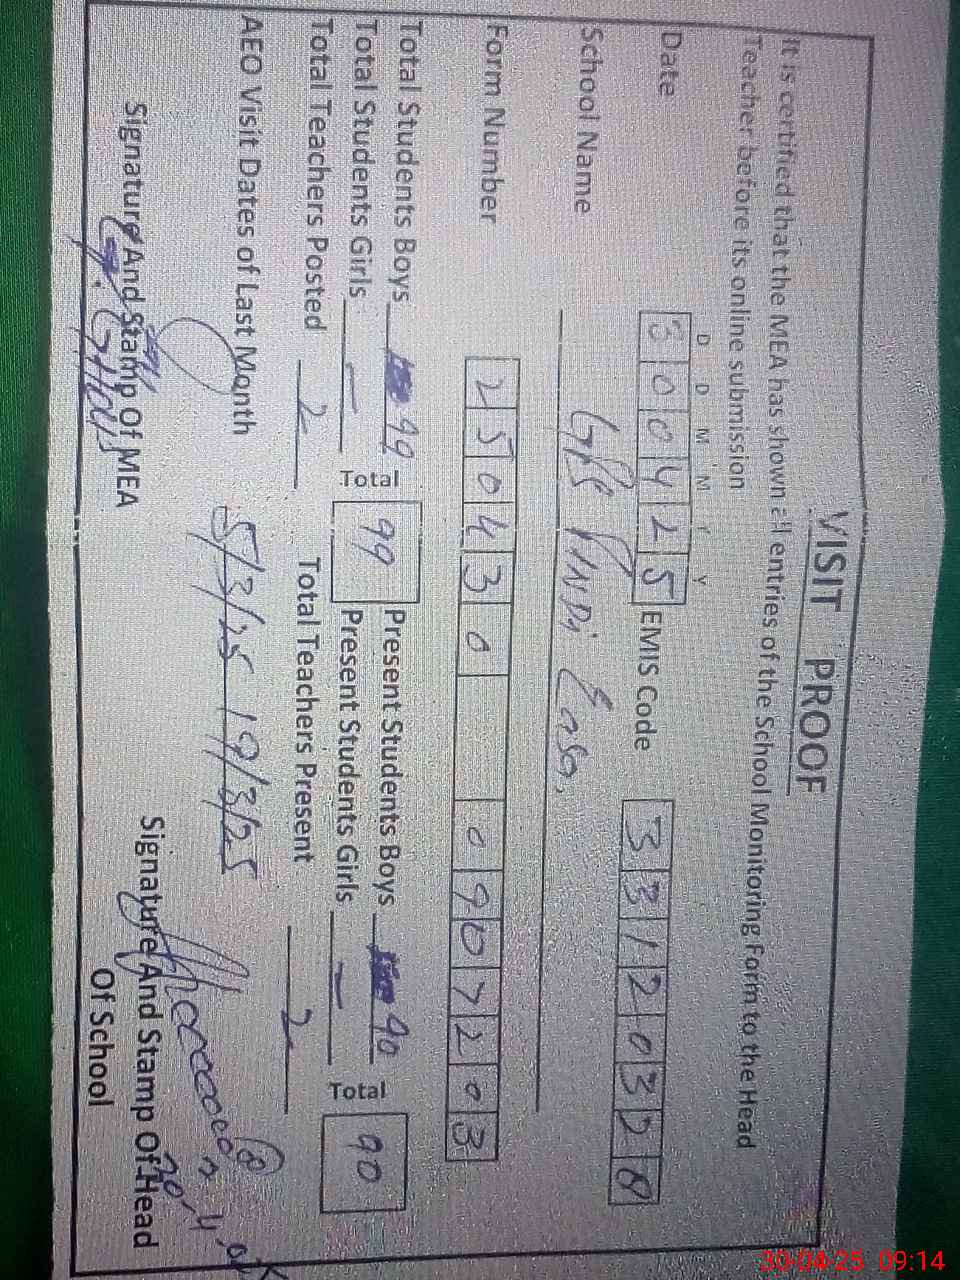 VISIT PROOF
It is certified that the MEA has shown all entries of the School Monitoring Form to the Head
Teacher before its online submission
D D M M Y Y
Date 300425 EMIS Code 33120328
School Name GPS PINDi
Form Number 250430 0907203
Total Students Boys 99 Present Students Boys 90
Total 99 Total 90
Total Students Girls — Present Students Girls —
Total Teachers Posted 2 Total Teachers Present 2
AEO Visit Dates of Last Month 5/3/25 19/3/25
Signature And Stamp Of MEA Signature And Stamp Of Head
Of School
30-04-25 09:14